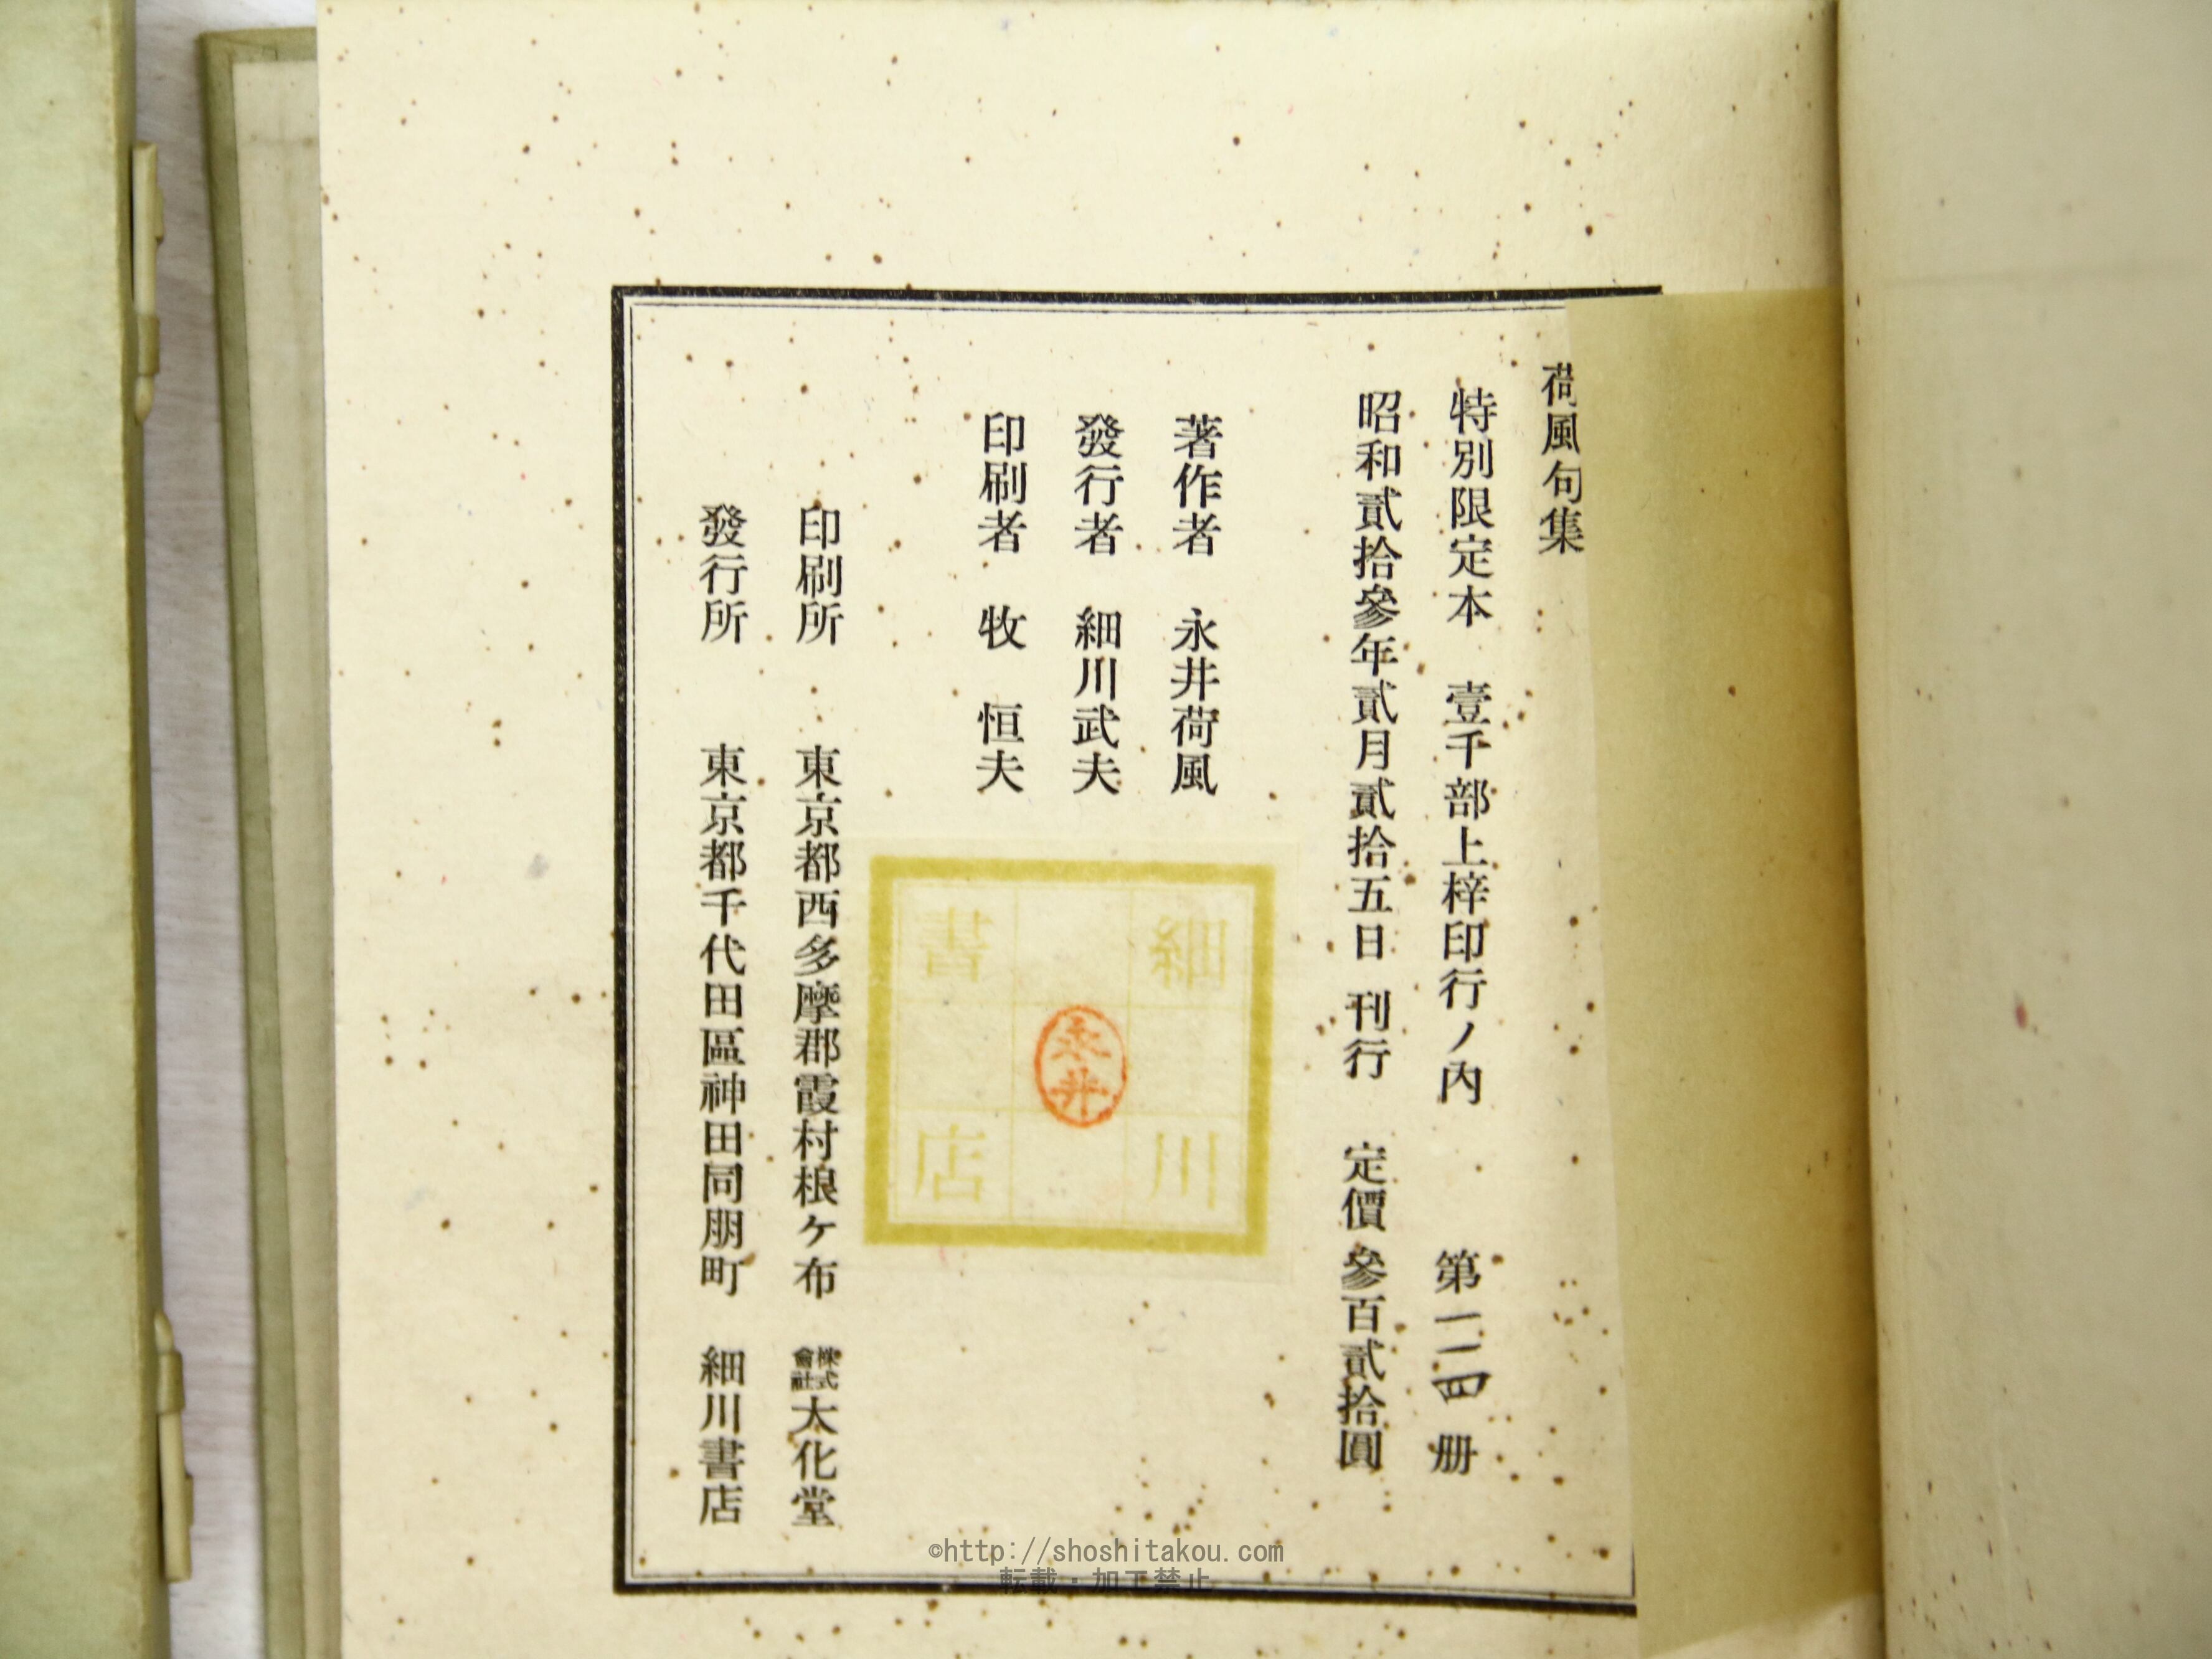 荷風句集
特別限定本　壹千部上梓印行ノ內　第一二四册
昭和貳拾參年貳月貳拾五日　刊行　定價參百貳拾圓
著作者　永井荷風
發行者　細川武夫
印刷者　牧　恒夫
細川書店
永井
印刷所　東京都西多摩郡霞村根ヶ布　株式會社大化堂
發行所　東京都千代田區神田同朋町　細川書店
©http://shoshitakou.com
転載・加工禁止